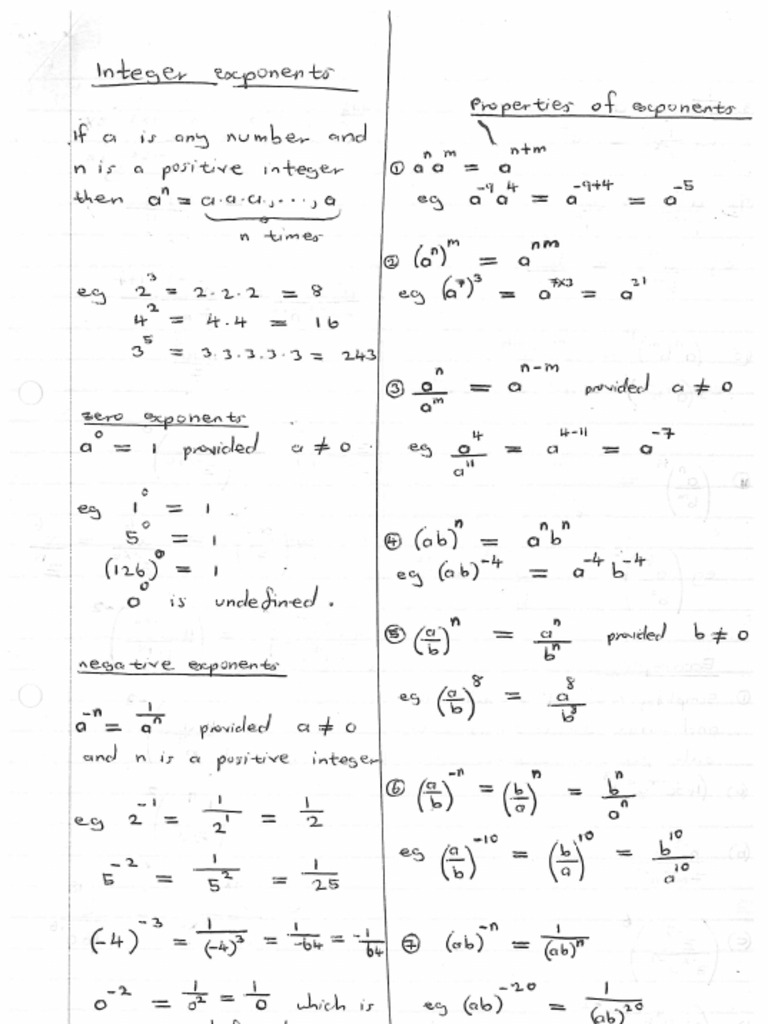 Integer exponents
If a is any number and
n is a positive integer
then aⁿ = a.a.a, ..., a
n times
eg 2³ = 2.2.2 = 8
4² = 4.4 = 16
3⁵ = 3.3.3.3.3 = 243
zero exponents
a⁰ = 1 provided a ≠ 0
eg 1⁰ = 1
5⁰ = 1
(126)⁰ = 1
0⁰ is undefined.
negative exponents
a⁻ⁿ = 1/aⁿ provided a ≠ 0
and n is a positive integer
eg 2⁻¹ = 1/2¹ = 1/2
5⁻² = 1/5² = 1/25
(-4)⁻³ = 1/(-4)³ = 1/-64 = -1/64
0⁻² = 1/0² = 1/0 which is
Properties of exponents
① aⁿaᵐ = aⁿ⁺ᵐ
eg a⁻⁹a⁴ = a⁻⁹⁺⁴ = a⁻⁵
② (aⁿ)ᵐ = aⁿᵐ
eg (a⁷)³ = a⁷ˣ³ = a²¹
③ aⁿ/aᵐ = aⁿ⁻ᵐ provided a ≠ 0
eg a⁴/a¹¹ = a⁴⁻¹¹ = a⁻⁷
④ (ab)ⁿ = aⁿbⁿ
eg (ab)⁻⁴ = a⁻⁴b⁻⁴
⑤ (a/b)ⁿ = aⁿ/bⁿ provided b ≠ 0
eg (a/b)⁸ = a⁸/b⁸
⑥ (a/b)⁻ⁿ = (b/a)ⁿ = bⁿ/aⁿ
eg (a/b)⁻¹⁰ = (b/a)¹⁰ = b¹⁰/a¹⁰
⑦ (ab)⁻ⁿ = 1/(ab)ⁿ
eg (ab)⁻²⁰ = 1/(ab)²⁰